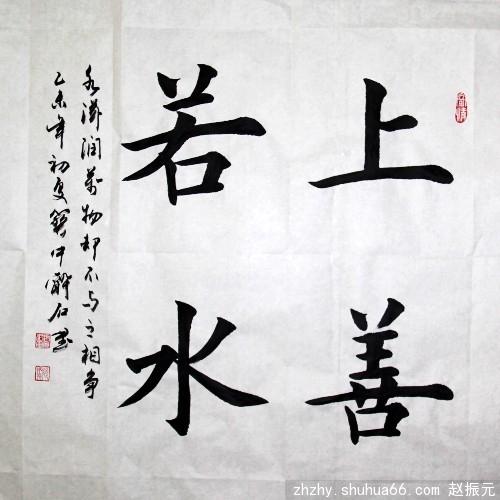 上善
若水
水滋润萬物却不与之相争
乙未年初夏冀中醉石书
zhzhy.shuhua66.com 赵振元